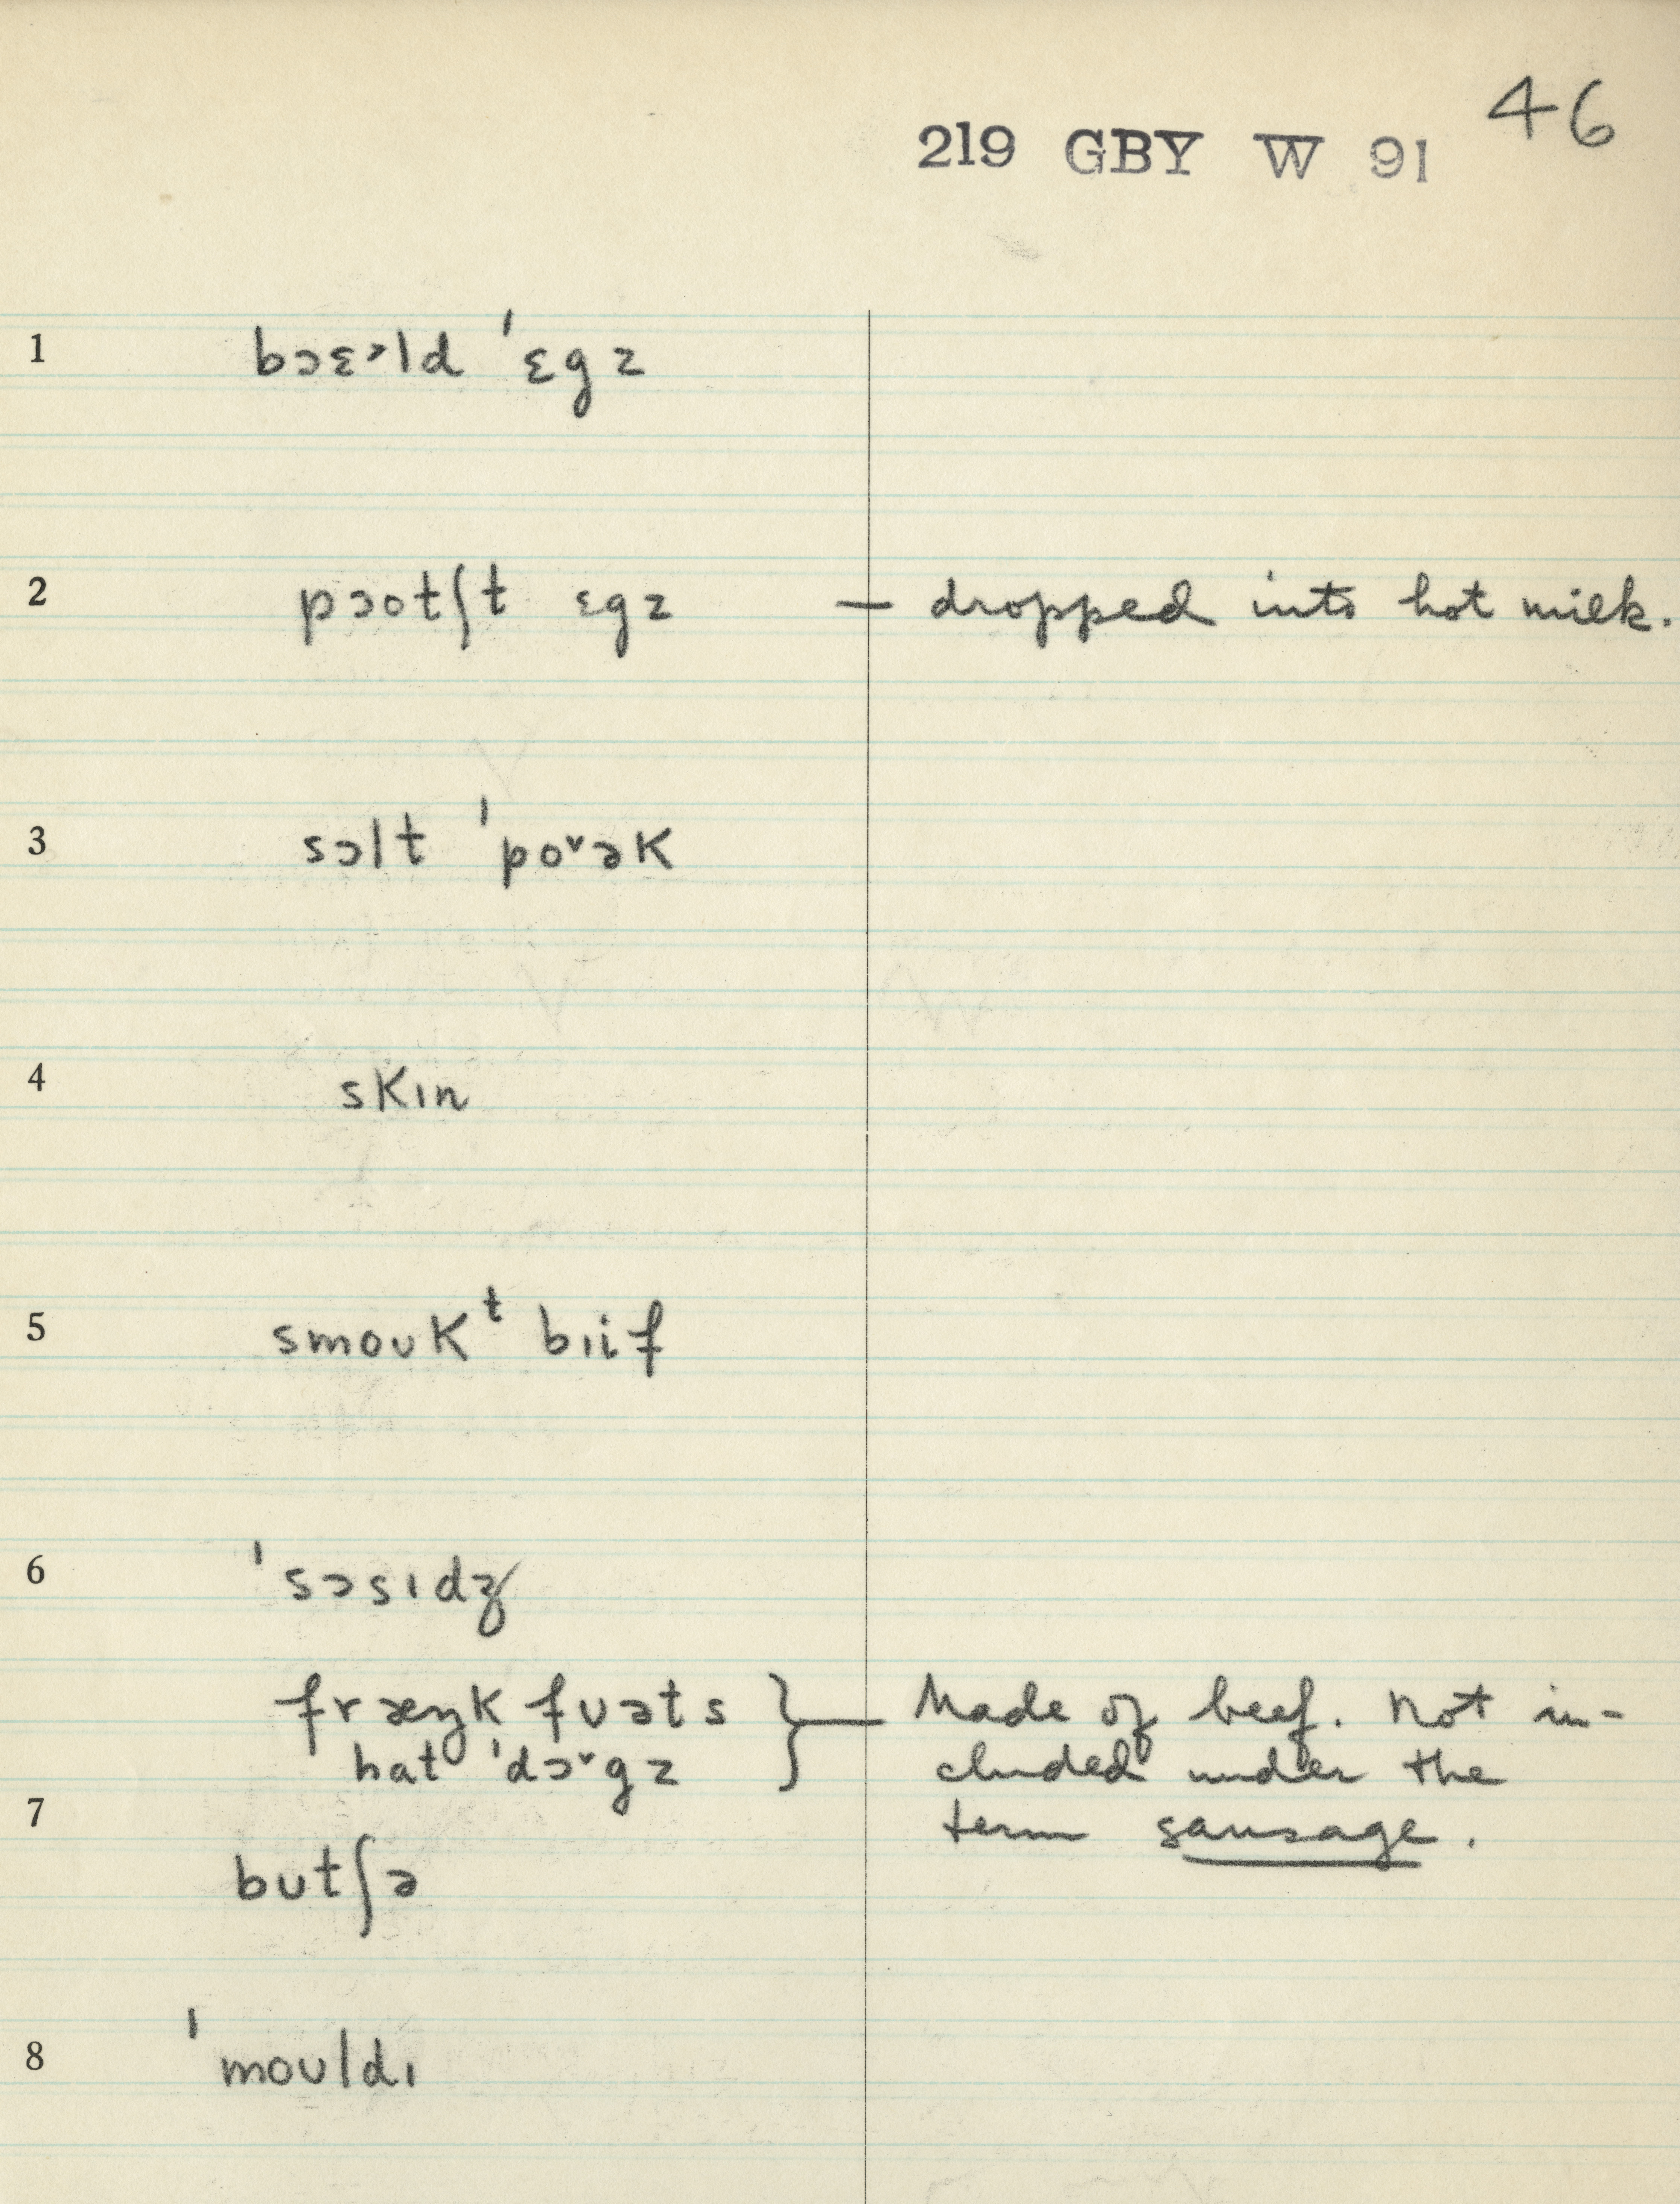 46
219 GBY W 91
1 bɔɛ˒ld ˈɛgz
2 pɔotʃt ɛgz — dropped into hot milk.
3 sɔlt ˈpo˅ək
4 skɪn
5 smoʊkᵗ bɪif
6 ˈsɔsɪdʒ
fræŋkfʊəts } — Made of beef. Not in-
hat ˈdɔ˅gz cluded under the
7 term sausage.
bʊtʃə
8 ˈmoʊldɪ